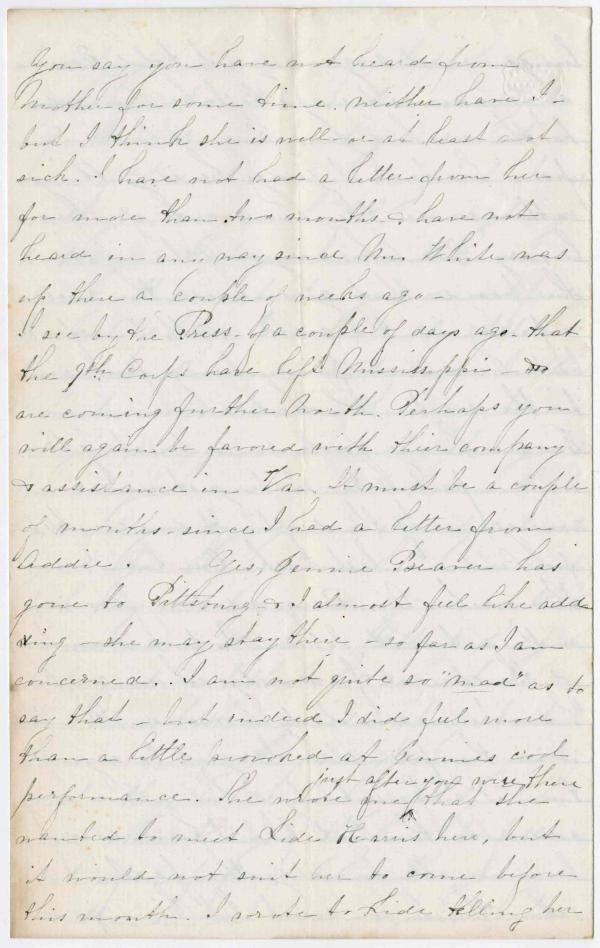 You say you have not heard from
Mother for some time. neither have I -
but I think she is well - or at least not
sick. I have not had a letter from her
for more than two months & have not
heard in any way since Mr. White was
up there a couple of weeks ago -
I see by the Press - of a couple of days ago - that
the 9th Corps have left Mississippi - &
are coming further North. Perhaps you
will again be favored with their company
& assistance in Va. It must be a couple
of months since I had a letter from
Addie. Yes, Jennie Beaver has
gone to Pittsburg - & I almost feel like add
ing - she may stay there - so far as I am
concerned. I am not quite so "mad" as to
say that - but indeed I did feel more
than a little provoked at Jennies cool
just after you were there
performance. She wrote me ^ that she
wanted to meet Lide Harris here, but
it would not suit her to come before
this month. I wrote to Lide telling her